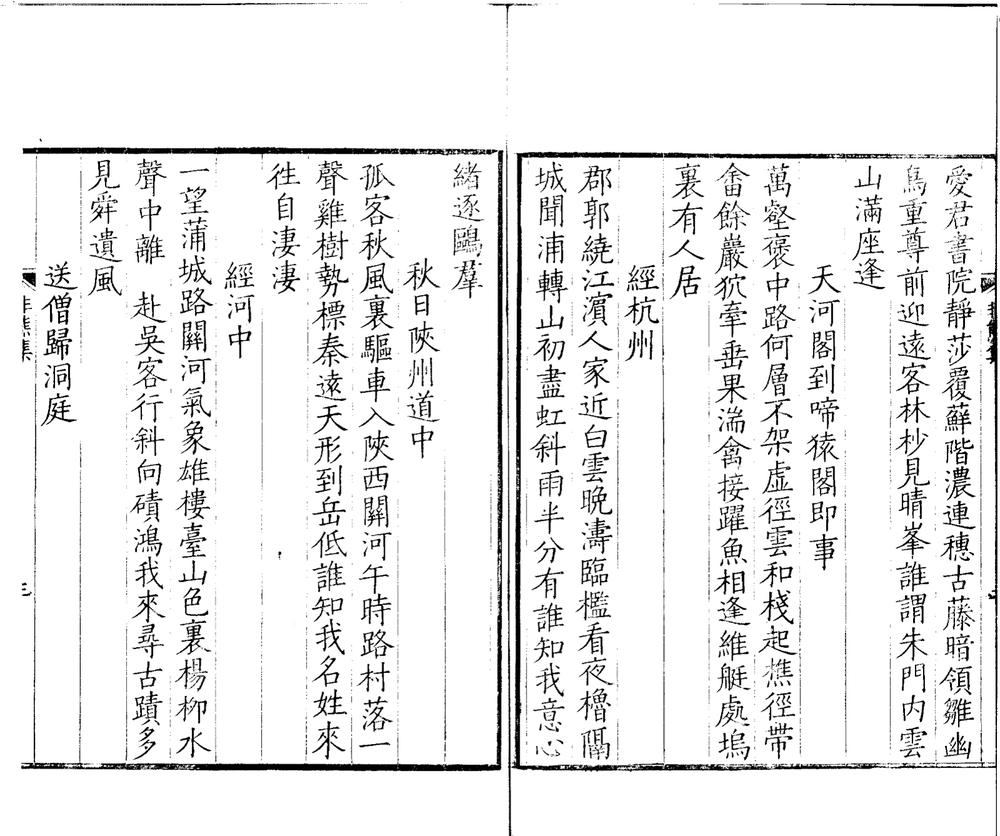 愛君書院靜莎覆蘚階濃連穗古藤暗領雛幽
鳥重尊前迎遠客林杪見晴峯誰謂朱門内雲
山滿座逢
天河閣到啼猿閣即事
萬壑褒中路何層不架虛徑雲和棧起樵徑帶
畬餘巖狖牽垂果湍禽接躍魚相逢維艇處塢
裏有人居
經杭州
郡郭繞江濱人家近白雲晚濤臨檻看夜櫓隔
城聞浦轉山初盡虹斜雨半分有誰知我意心
緒逐鷗羣
秋日陝州道中
孤客秋風裏驅車入陝西關河午時路村落一
聲雞樹勢標秦遠天形到岳低誰知我名姓來
往自淒淒
經河中
一望蒲城路關河氣象雄樓臺山色裏楊柳水
聲中離 赴吳客行斜向磧鴻我來尋古蹟多
見舜遺風
送僧歸洞庭